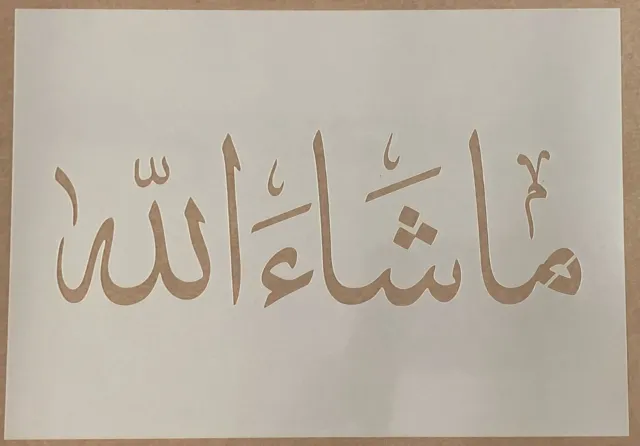 ما شاءَ اللّٰه